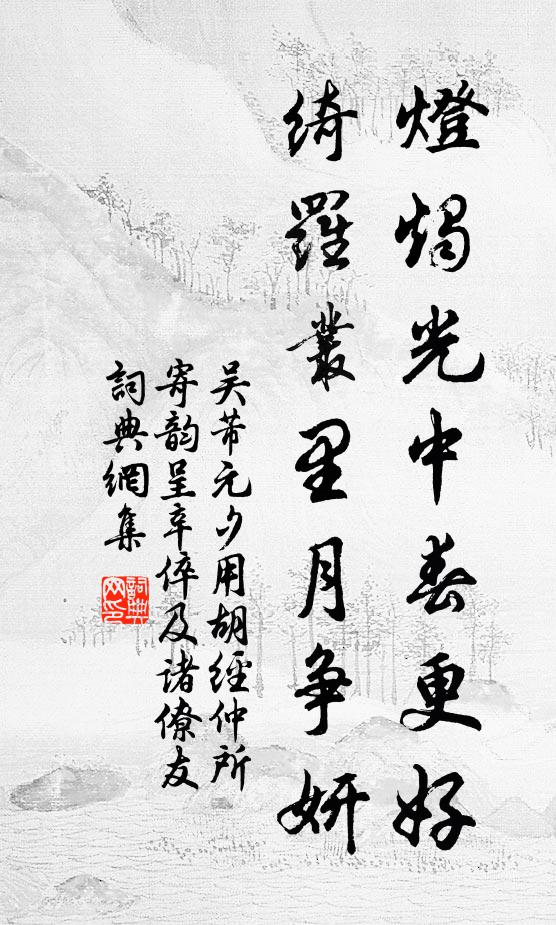 燈燭光中春更好
綺羅叢里月爭妍
吴芾元夕用胡經仲所
寄韵呈辛倅及諸僚友
詞典網集
詞典
网印